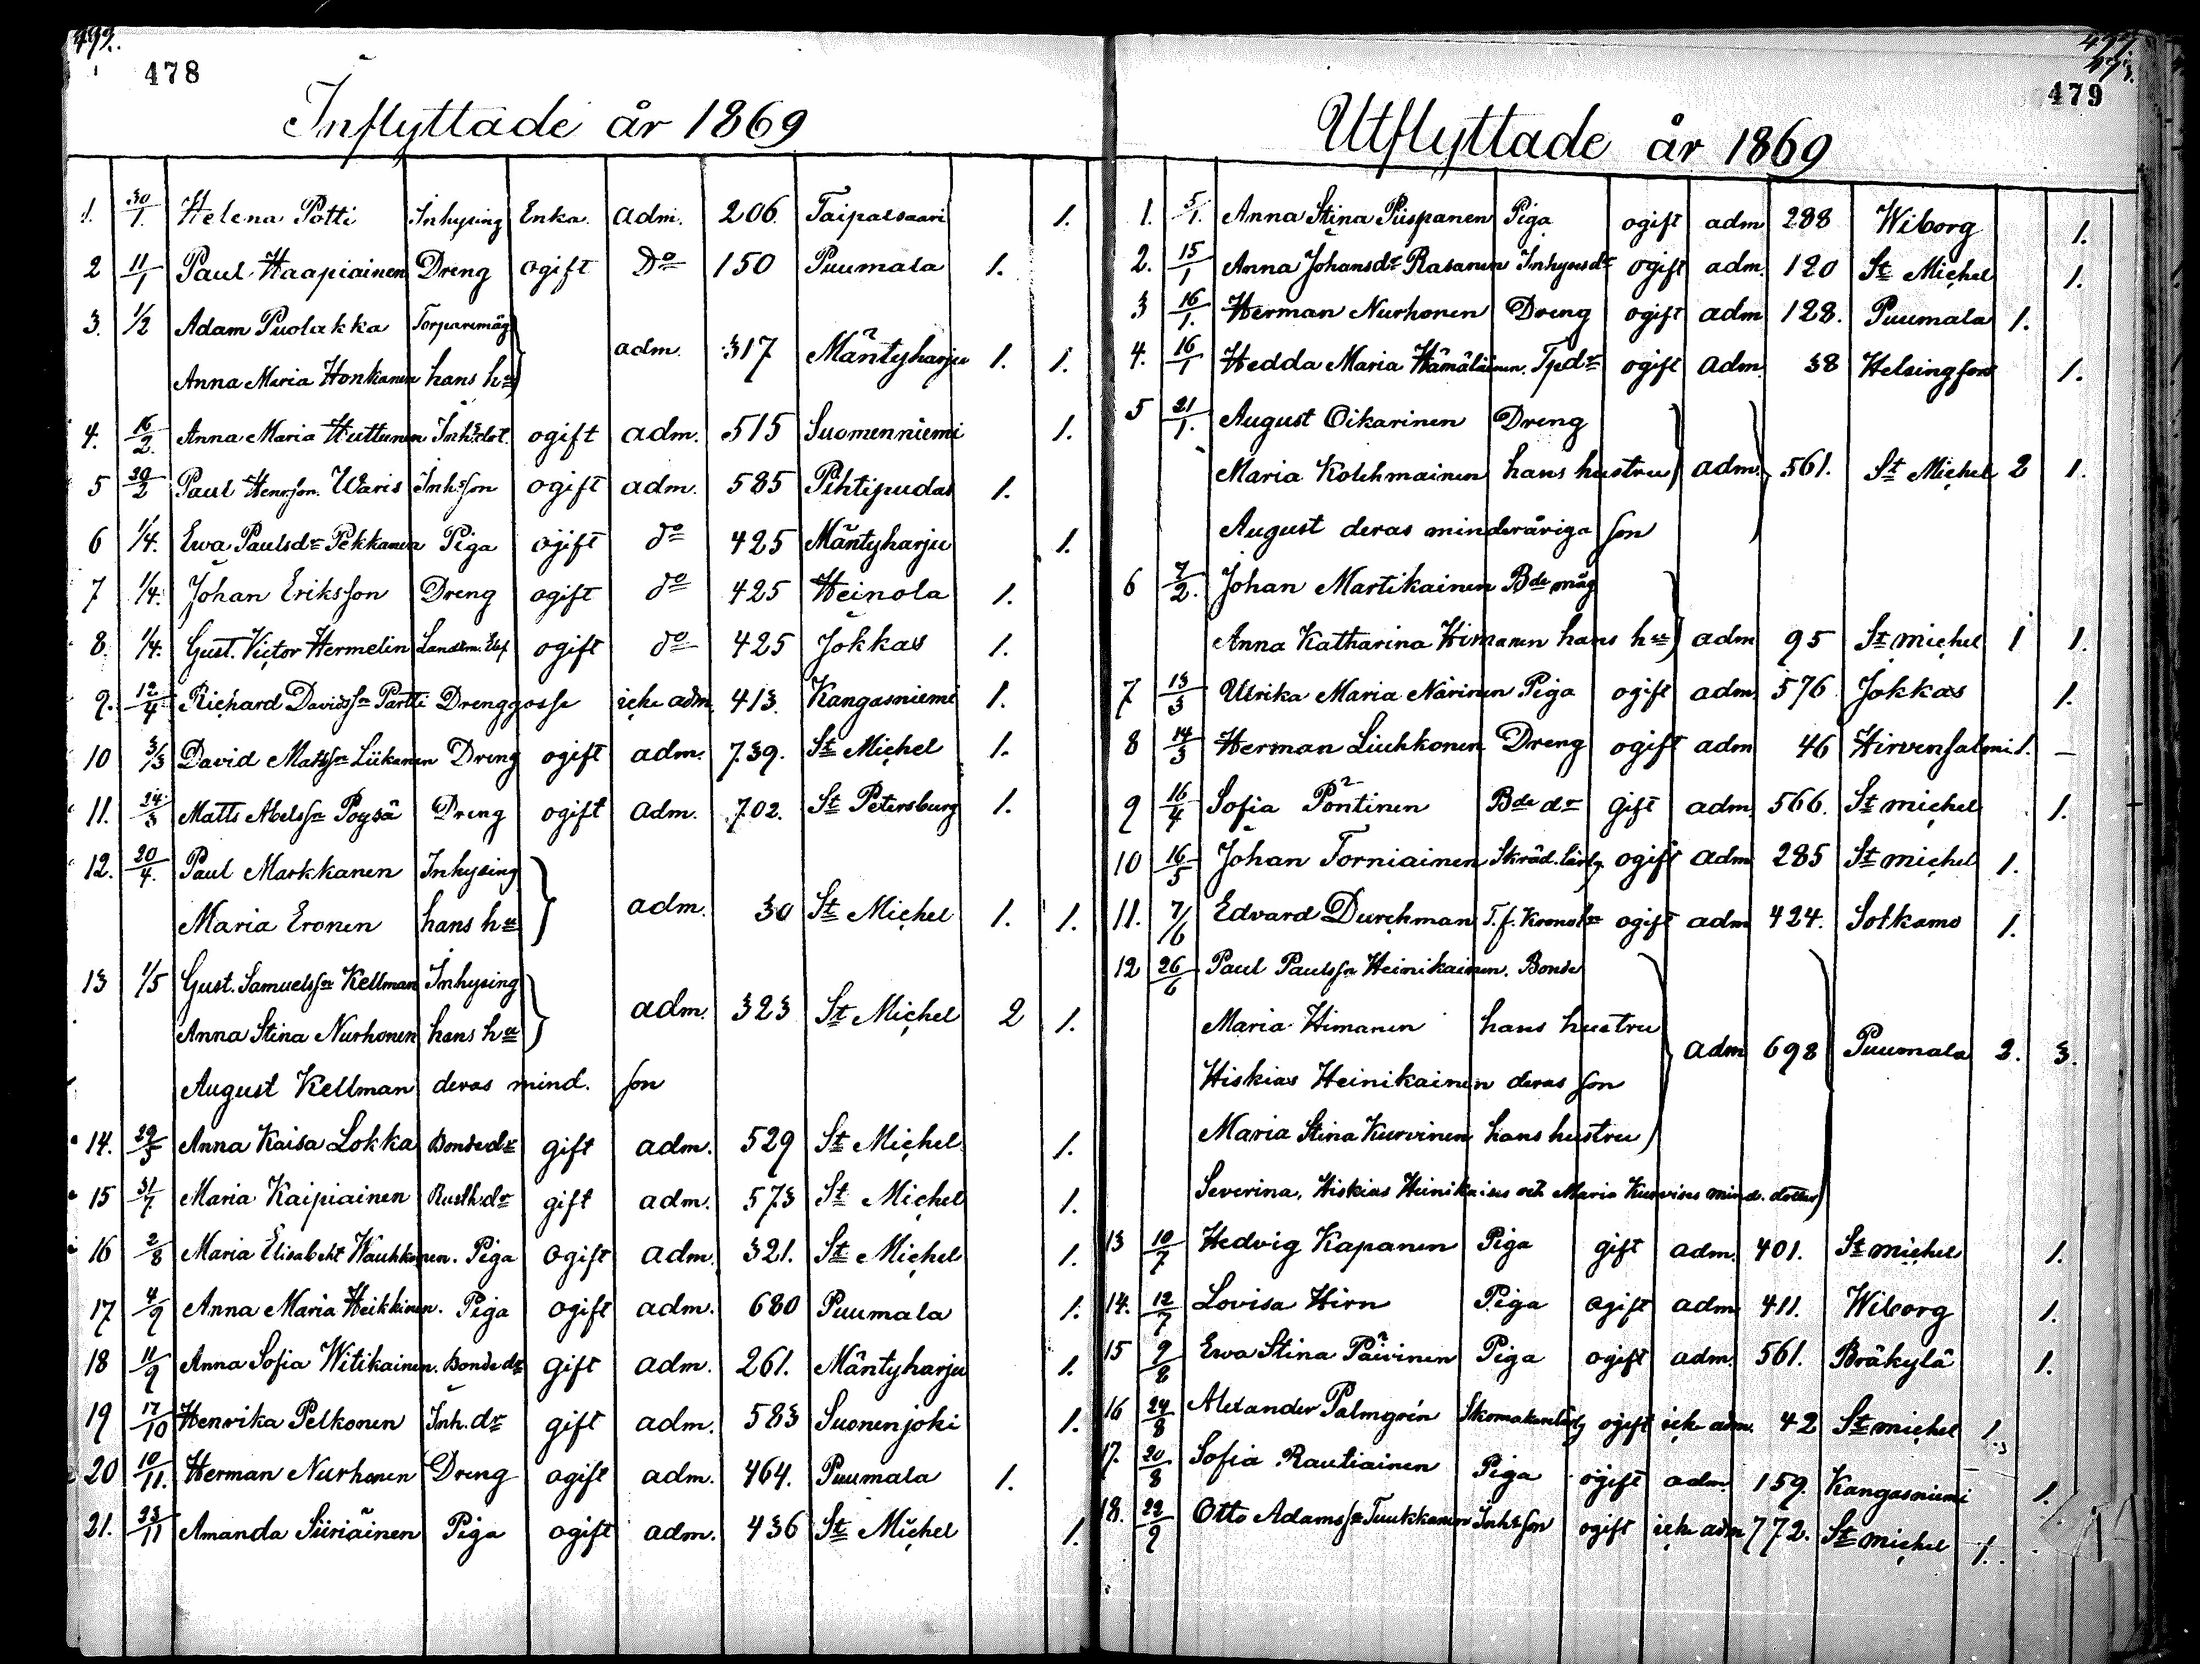 493.
478
Inflyttade år 1869
1. 30/1. Helena Potti Inhysing Enka. adm. 206. Taipalsaari 1.
2 11/1 Paul Haapiainen Dreng ogift do 150 Puumala 1.
3. 1/2 Adam Puolakka Torparemåg
adm. 317 Mäntyharju 1. 1.
Anna Maria Honkanen hans hu
4. 16/2. Anna Maria Huttunen Inh. dot. ogift adm. 515 Suomenniemi 1.
5 /2 Paul Henrsson. Waris Inh. son ogift adm. 585 Pihtipudas 1.
6 1/4. Ewa Paulsdr Pekkanen Piga ogift do 425 Mäntyharju 1.
7 1/4. Johan Eriksson Dreng ogift do 425 Heinola 1.
8. 1/4. Gust. Victor Hermelin Landtm. Elef ogift do 425 Jokkas 1.
9. 12/4 Richard Davidssn Partti Drenggosse icke adm. 413. Kangasniemi 1.
10 3/3 David Mattssn Liikanen Dreng ogift adm. 739. St Michel 1.
11. 24/3 Matts Abelssn Pöysä Dreng ogift adm. 702. St Petersburg 1.
12. 20/4. Paul Markkanen Inhysing
adm. 30 St Michel 1. 1.
Maria Eronen hans hu
13 1/5 Gust. Samuelssn Kellman Inhysing
adm. 323 St Michel 2 1.
Anna Stina Nurhonen hans hu
August Kellman deras mind. son
14. 29/5 Anna Kaisa Lokka Bondedr gift adm. 529 St Michel 1.
15 31/7. Maria Kaipiainen Rusth. dr gift adm. 573 St Michel 1.
16 2/8 Maria Elisabeht Wauhkonen. Piga ogift adm. 321. St Michel 1.
17 4/9 Anna Maria Heikkinen. Piga ogift adm. 680 Puumala 1.
18 11/9 Anna Sofia Witikainen. Bondedr gift adm. 261. Mäntyharju 1.
19 17/10 Henrika Pelkonen Inh. dr gift adm. 583 Suonenjoki 1.
20 10/11. Herman Nurhonen Dreng ogift adm. 464. Puumala 1.
21. 23/11 Amanda Siiriäinen Piga ogift adm. 436 St Michel 1.
479
Utflyttade år 1869
1. 5/1. Anna Stina Piispanen Piga ogift adm 288 Wiborg 1.
2. 15/1 Anna Johansdr Rasanen Inhysesdr ogift adm. 120 St Michel 1.
3 16/1. Herman Nurhonen Dreng ogift adm 128. Puumala 1.
4. 16/1 Hedda Maria Hämäläinen. Tpdr ogift adm. 38 Helsingfors 1.
5 21/1. August Oikarinen Dreng
Maria Kolehmainen hans hustru adm. 561. St Michel 2 1.
August deras minderåriga son
6 7/2. Johan Martikainen Bde måg
Anna Katharina Himanen hans hu adm 95 St michel 1 1.
7 13/3 Ulrika Maria Närinen Piga ogift adm. 576 Jokkas 1.
8 14/3 Herman Liuhkonen Dreng ogift adm 46 Hirvensalmi 1. –
9 16/4 Sofia Pöntinen Bde dr gift adm. 566. St michel 1.
10 16/5 Johan Torniainen Skräd. lärlg ogift adm 285 St michel 1.
11. 7/6 Edvard Durchman T. f. Kronol ogift adm 424. Sotkamo 1.
12 26/6 Paul Paulssn Heinikainen. Bonde
Maria Himanen hans hustru
adm 698 Puumala 2. 3.
Hiskias Heinikainen deras son
Maria Stina Kurvinen hans hustru
Severina, Hiskias Heinikaises och Maria Kurvises mind. dotter
13 10/7 Hedvig Kapanen Piga gift adm. 401. St michel 1.
14. 12/7 Lovisa Hirn Piga ogift adm 411. Wiborg 1.
15 9/8 Ewa Stina Päivinen Piga ogift adm. 561. Bräkylä 1.
16 24/8 Alexander Palmgrén Skomakarelärlg ogift icke adm. 42 St michel 1.
17. 20/8 Sofia Rautiainen Piga ogift adm. 159. Kangasniemi 1.
18. 22/9 Otto Adamssn Tuukkanen Inhs son ogift icke adm 772. St michel 1.